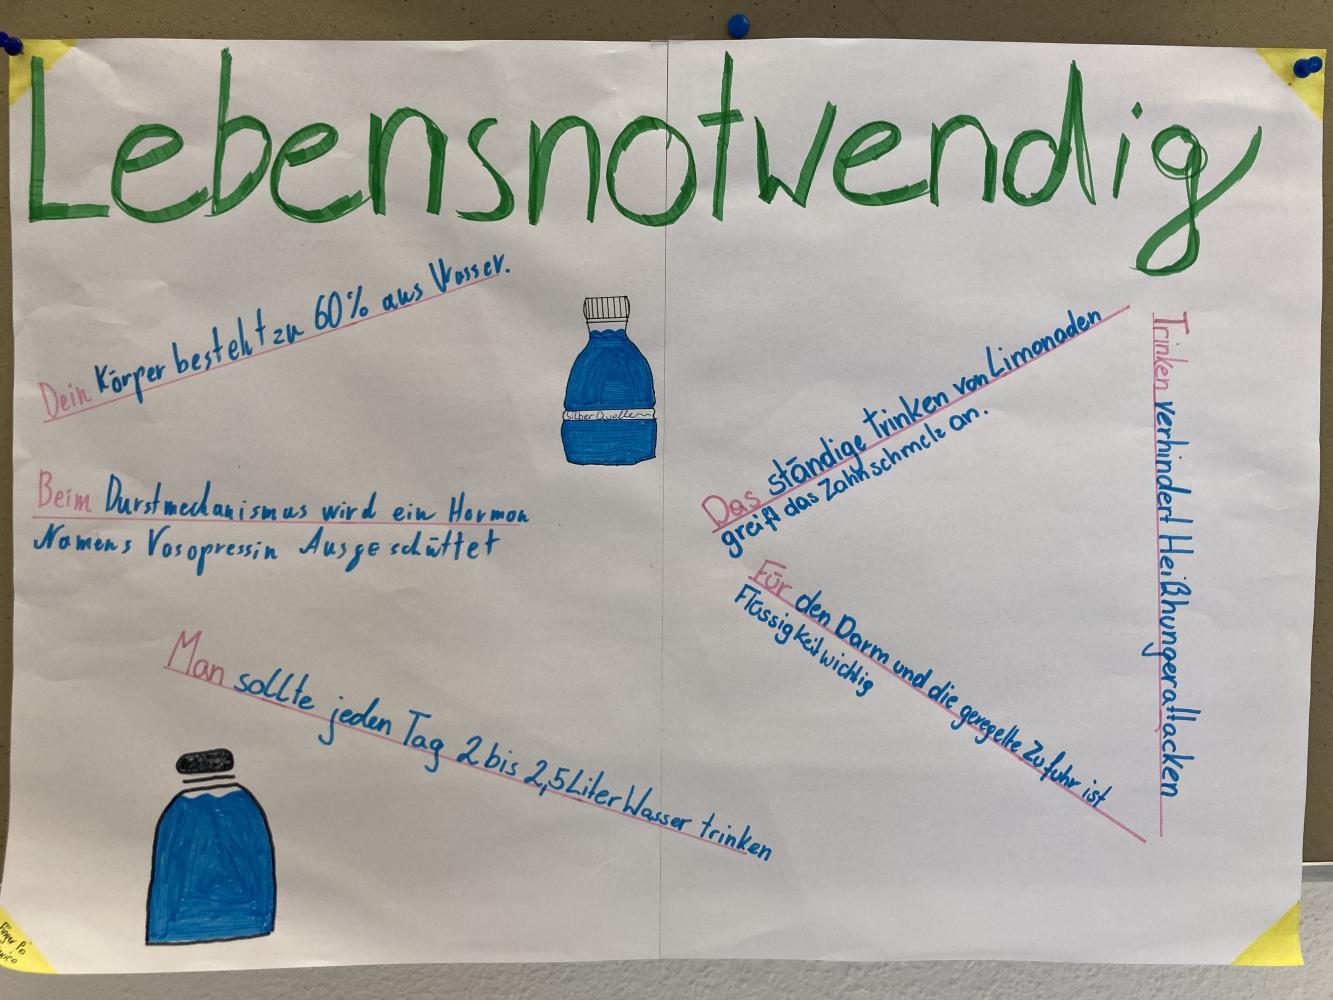 Lebensnotwendig
Dein Körper besteht zu 60% aus Wasser.
Silber Quelle
Beim Durstmechanismus wird ein Hormon
Namens Vasopressin Ausgeschüttet
Man sollte jeden Tag 2 bis 2,5 Liter Wasser trinken
Das ständige trinken von Limonaden
greift das Zahnschmelz an.
Für den Darm und die geregelte Zufuhr ist
Flüssigkeit wichtig
Trinken verhindert Heißhungerattacken